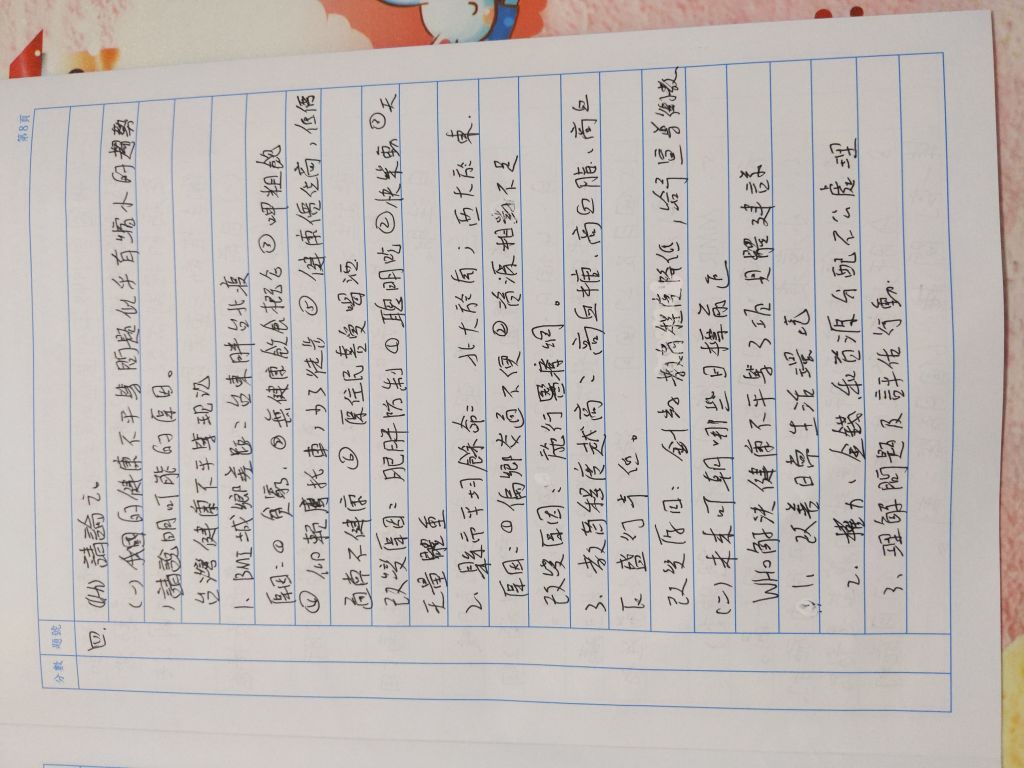 第8頁
分數 題號
四. (H) 請論之
(一) 我國的健康不平等問題似乎有縮小的趨勢
,請說明可能的原因。
台灣健康不平等現況
1. BMI城鄉差距:台東胖台北瘦
原因:① 貧窮. ② 無健康飲食概念 ③ 呷粗飽
④ 仰賴摩托車,少了徒步 ⑤ 健康價位高,低價
通常不健康 ⑥ 原住民喜愛喝酒
改變原因:肥胖防制 ① 聰明吃 ② 快樂動 ③ 天
天量體重
2. 縣市平均餘命:北大於南;西大於東.
原因:① 偏鄉交通不便 ② 資源相對不足
改變原因:施行醫療網。
3. 教育程度越高:高血糖、高血脂、高血
反 盛行率 低。
改變原因:針對教育程度降低,給予宣導衛教
(二) 未來可朝哪些目標前進
WHO解決健康不平等3項具體建議
1. 改善日常生活環境
2. 權力、金錢和資源分配不公處理
3. 理解問題及評估行動.